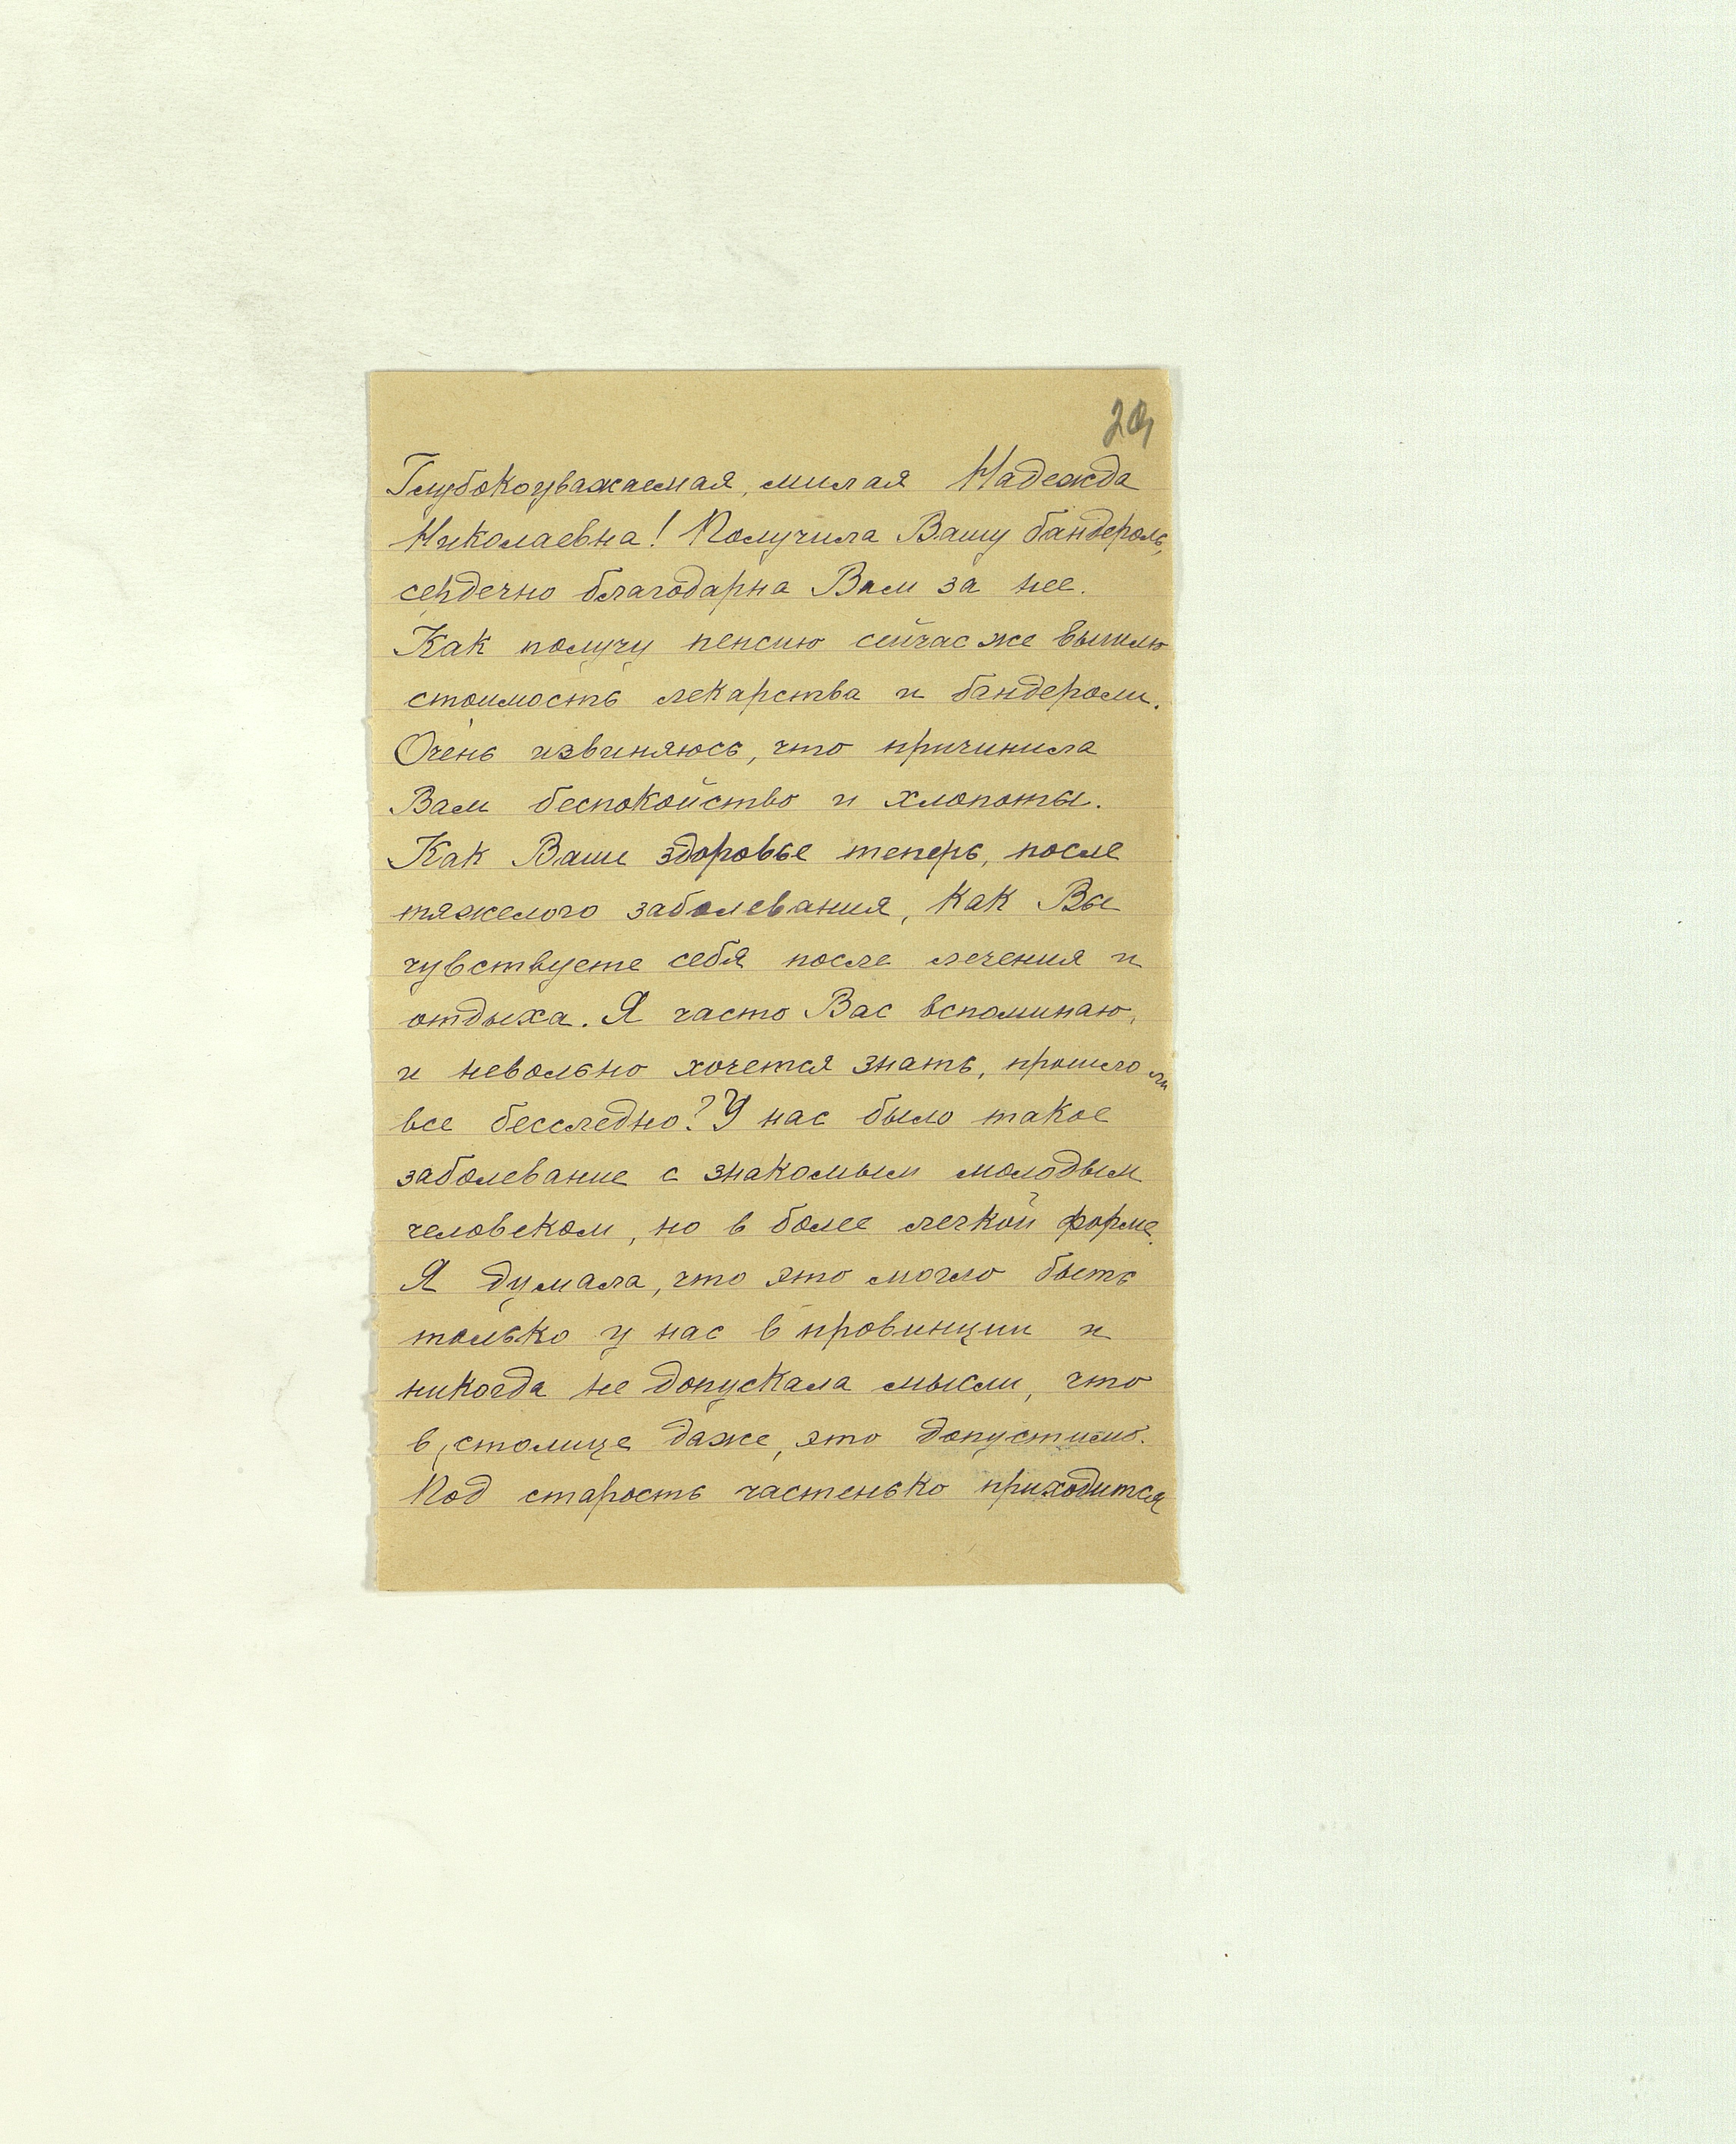 Глубокоуважаемая, милая Надежда
Николаевна! Получила Вашу бандероль,
сердечно благодарна Вам за нее.
Как получу пенсию сейчас же вышлю
стоимость лекарства и бандероли.
Очень извиняюсь, что причинила
Вам беспокойство и хлопоты.
Как Ваше здоровье теперь, после
тяжелого заболевания, как Вы
чувствуете себя после лечения и
отдыха. Я часто Вас вспоминаю,
и невольно хочется знать, прошло ли
все бесследно? У нас было такое
заболевание с знакомым молодым
человеком, но в более легкой форме.
Я думала, что это могло быть
только у нас в провинции и
никогда не допускала мысли, что
в столице даже, это допустимо.
Под старость частенько приходится